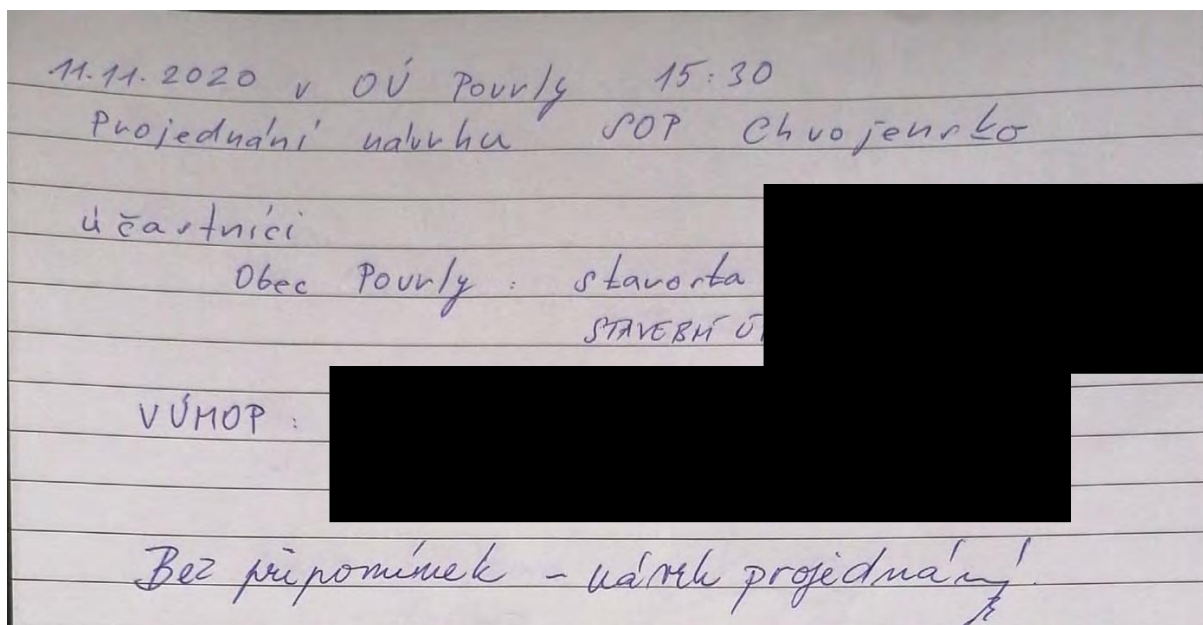 11.11.2020 v OÚ Povrly 15:30
Projednání návrhu SOP Chvojensko
účastníci
Obec Povrly : starosta
STAVEBNÍ
VÚMOP :
Bez připomínek – návrh projednán